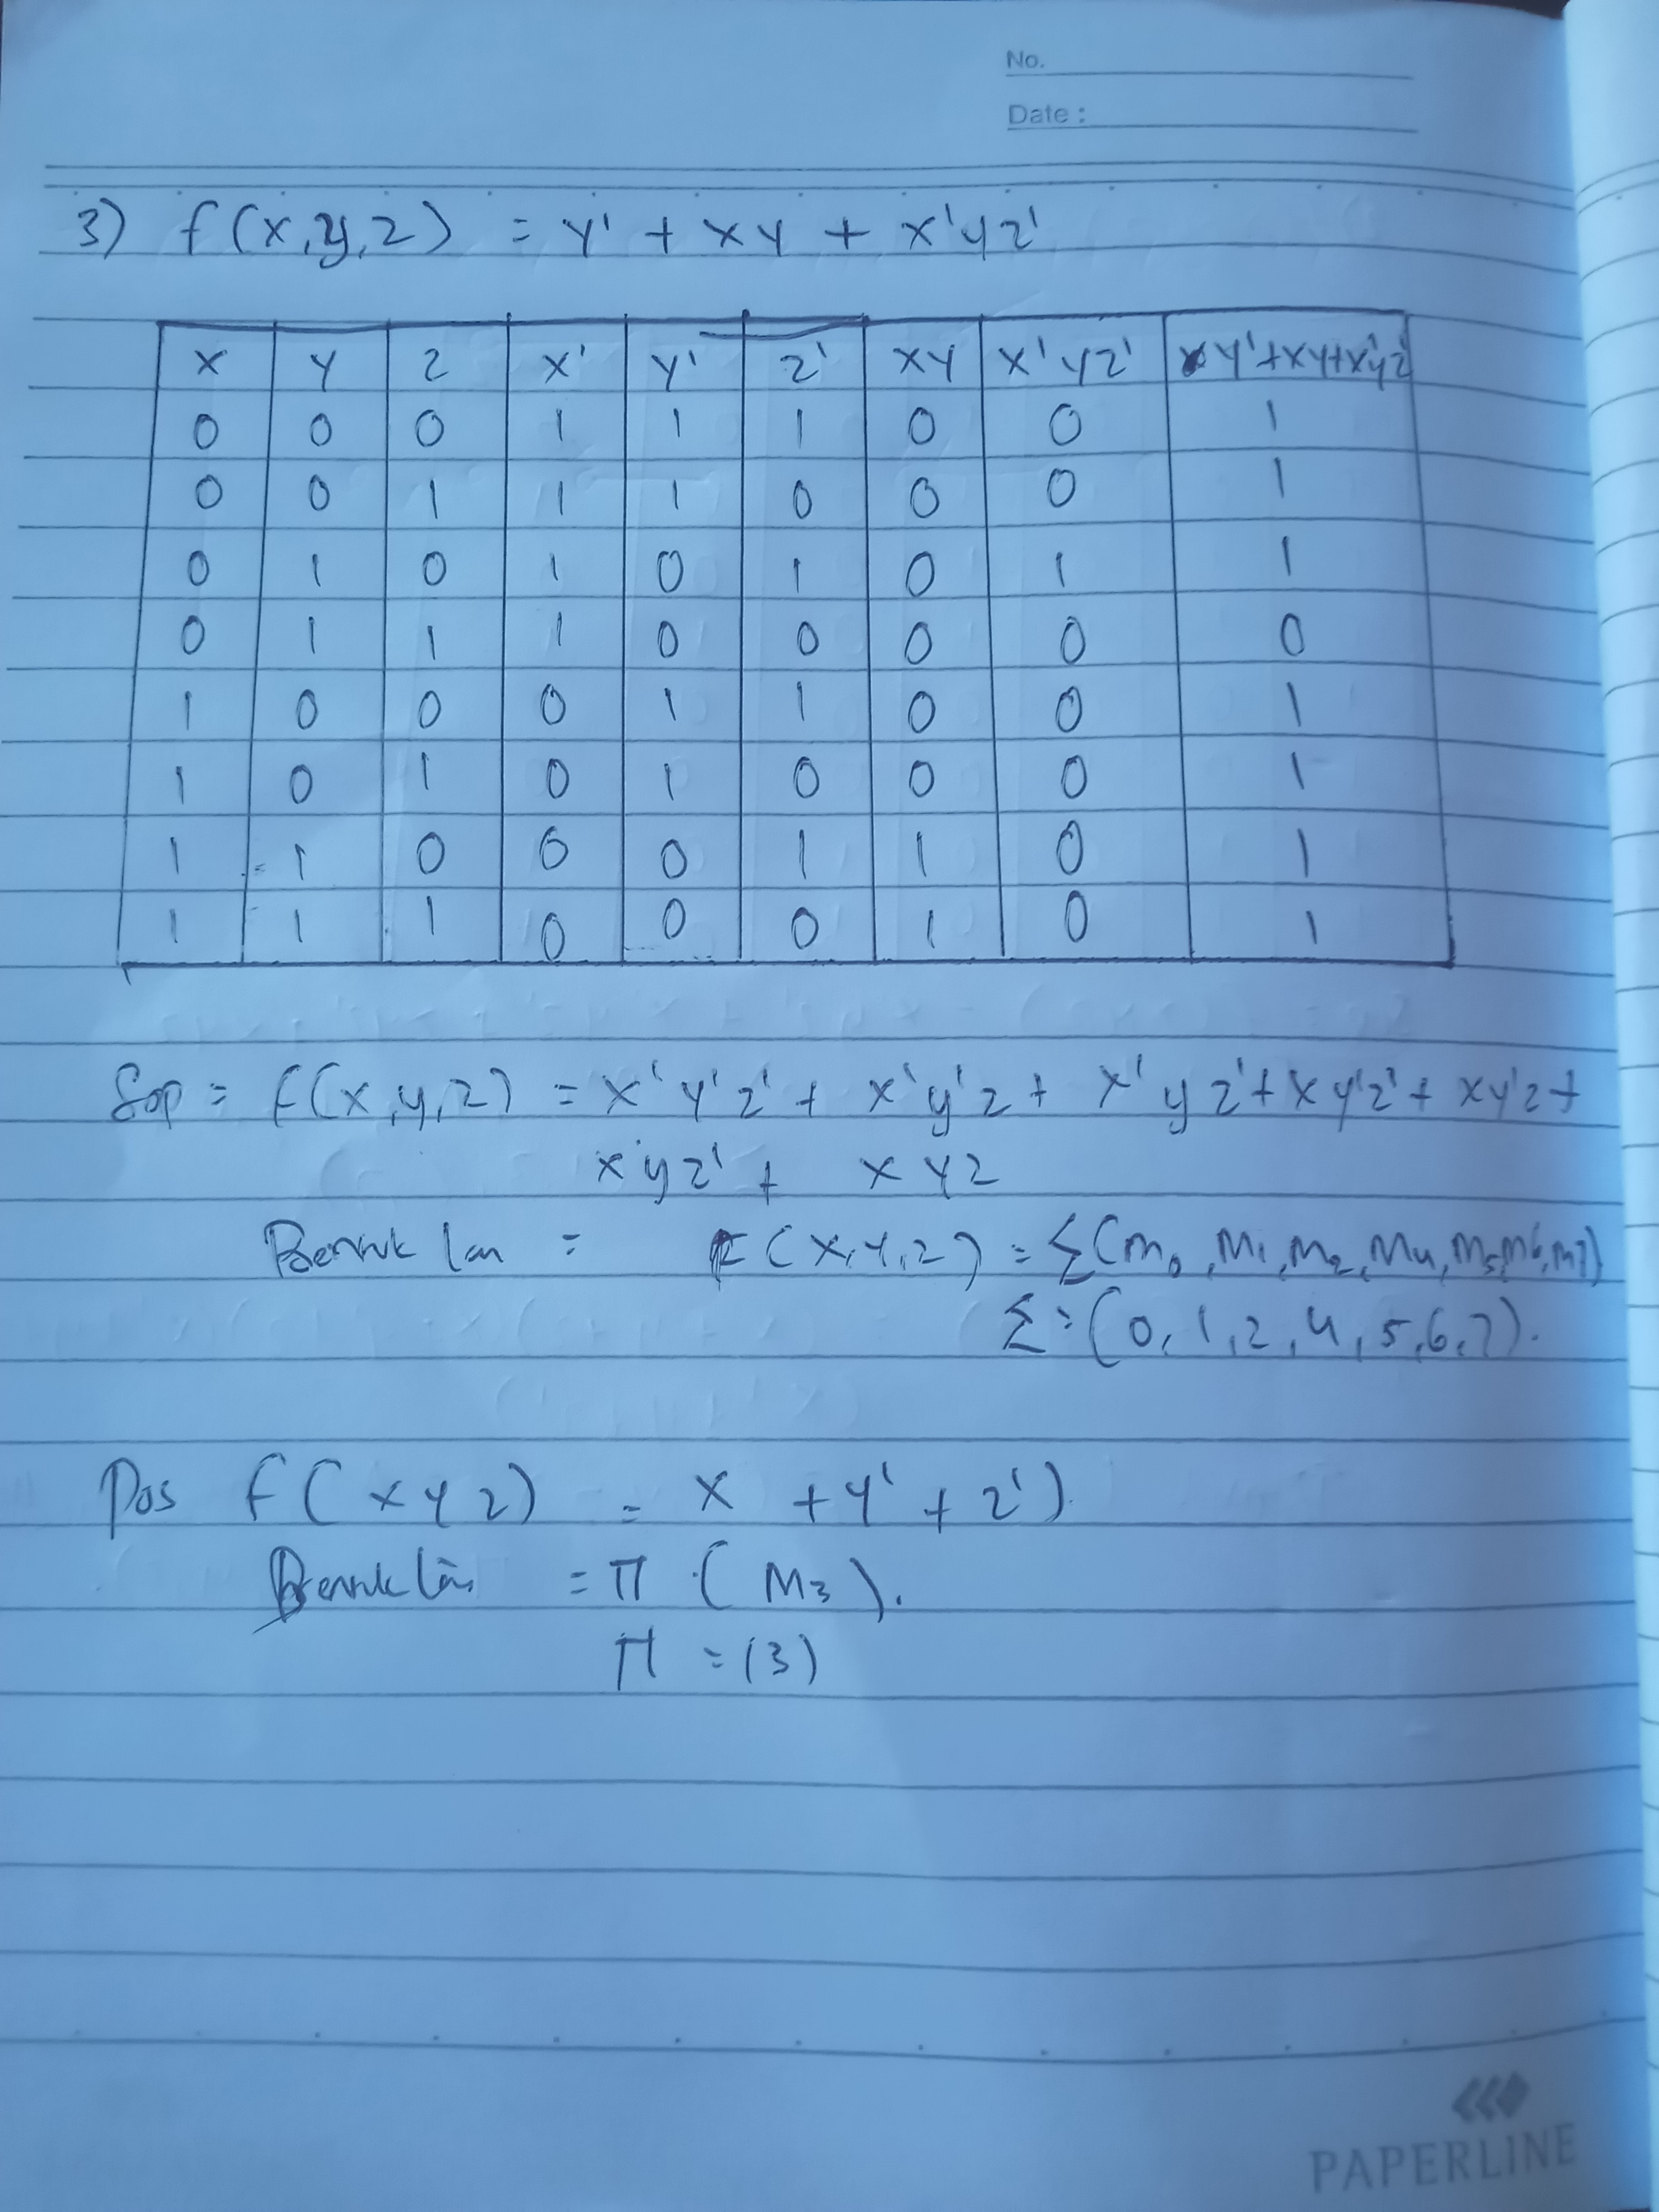 No.
Date :
3) f(x,y,z) = y' + xy + x'yz'
x y z x' y' z' xy x'yz' y'+xy+x'yz'
0 0 0 1 1 1 0 0 1
0 0 1 1 1 0 0 0 1
0 1 0 1 0 1 0 1 1
0 1 1 1 0 0 0 0 0
1 0 0 0 1 1 0 0 1
1 0 1 0 1 0 0 0 1
1 1 0 0 0 1 1 0 1
1 1 1 0 0 0 1 0 1
Sop = f(x,y,z) = x'y'z' + x'y'z + x'yz' + xy'z' + xy'z +
xyz' + xyz
Bentuk lain = F(x,y,z) = Σ(m0, m1, m2, m4, m5, m6, m7)
Σ = (0, 1, 2, 4, 5, 6, 7).
Pos f(xyz) = x + y' + z')
Bentuk lain = π (M3).
π = (3)
PAPERLINE